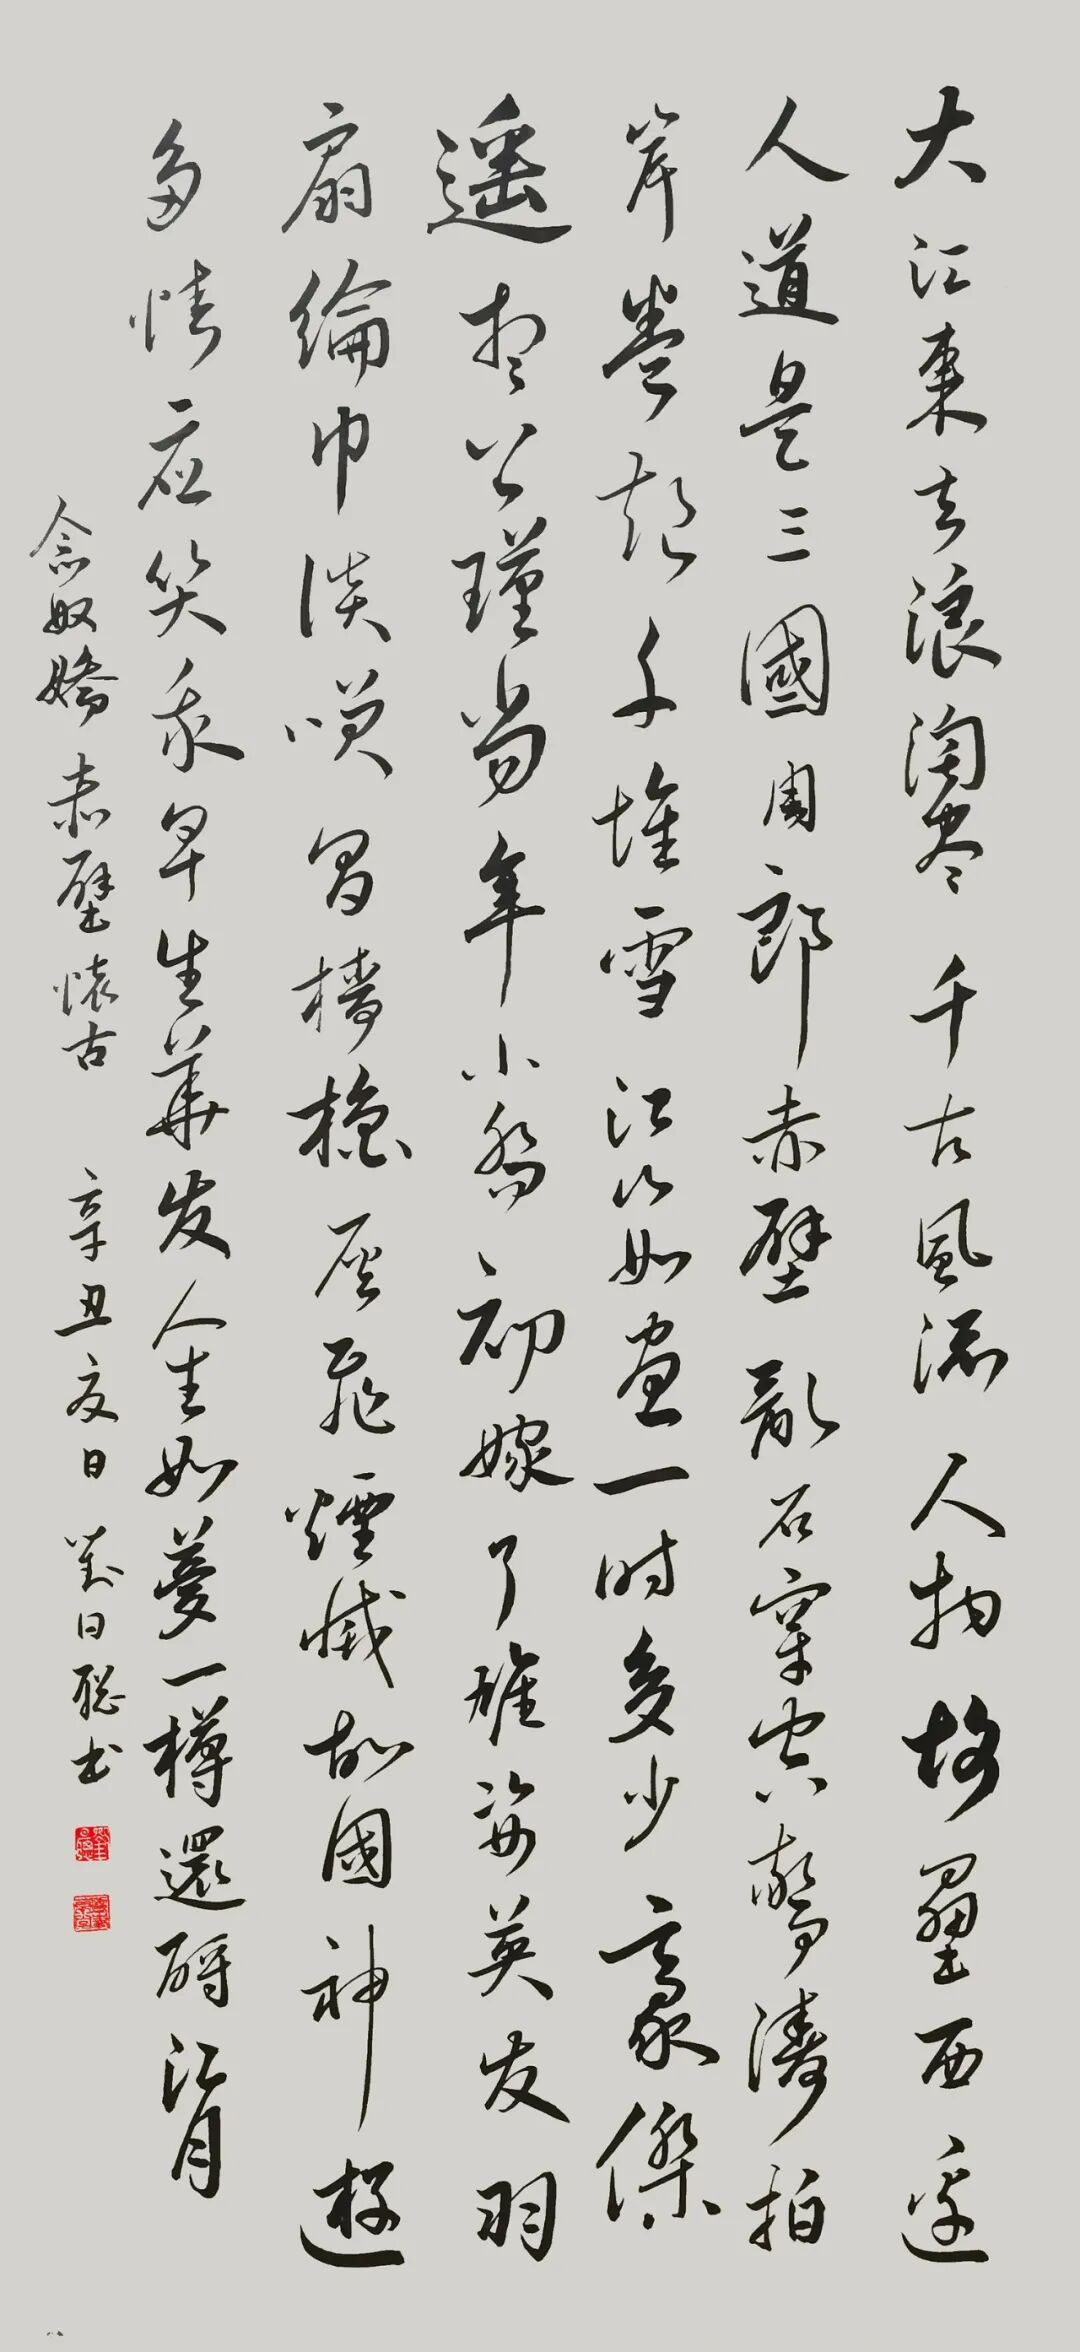 大江東去浪淘盡千古風流人物故壘西邊
人道是三國周郎赤壁亂石穿空驚濤拍
岸卷起千堆雪江山如畫一时多少豪傑
遥想公瑾當年小喬初嫁了雄姿英发羽
扇綸巾談咲間檣櫓灰飛煙滅故國神遊
多情應笑我早生華发人生如夢一樽還酹江月
念奴嬌赤壁懷古 辛丑夏日 日聪书